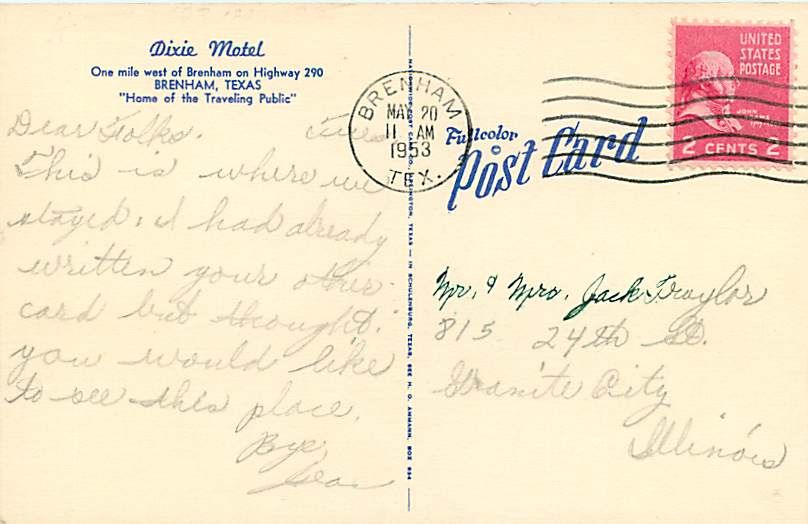 Dixie Motel
One mile west of Brenham on Highway 290
BRENHAM, TEXAS
"Home of the Traveling Public"
Dear Folks. Tues
This is where we
stayed. I had already
written your other
card but thought
you would like
to see this place.
Bye
BRENHAM
MAY 20
11 AM
1953
TEX.
UNITED
STATES
POSTAGE
JOHN
2 CENTS 2
Fullcolor
Post Card
Mr. & Mrs. Jack Traylor
815 24th St.
Granite City
Illinois
TEXAS — IN SCHULENBURG, TEXAS, SEE H. O. AHMANN, BOX